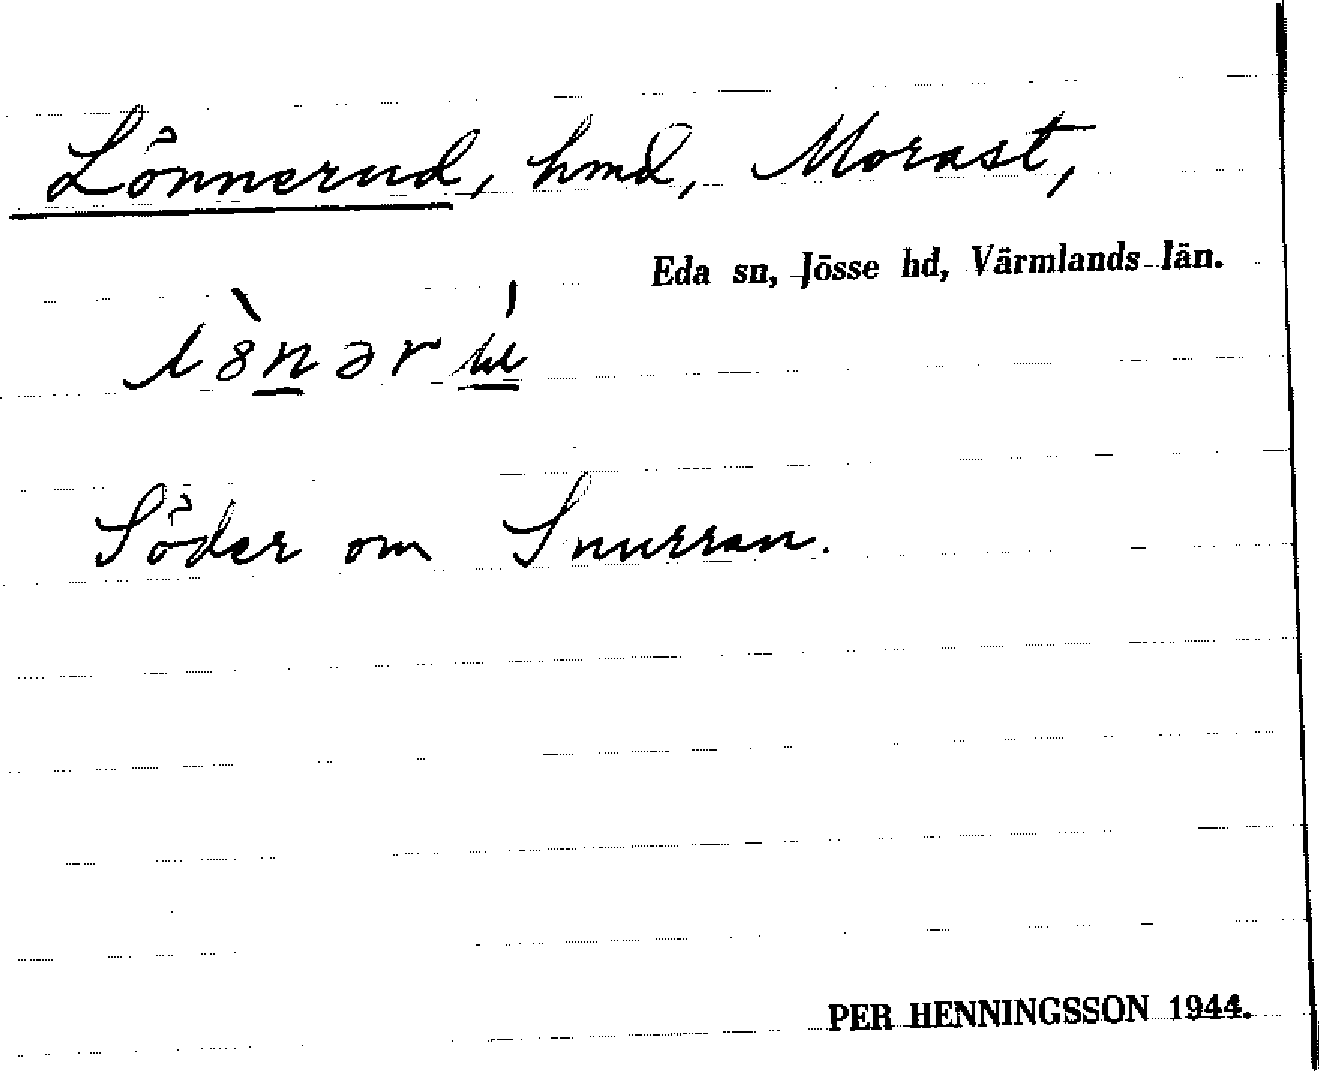 Lönnerud, hmd, Morast,
Eda sn, Jösse hd, Värmlands län.
Söder om Snurran.
PER HENNINGSSON 1944.